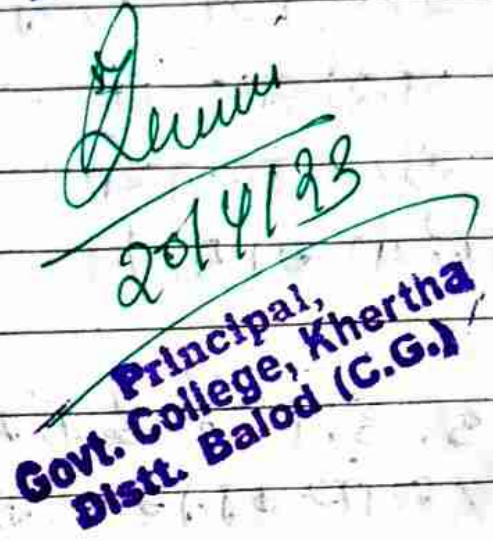 20/4/23
Principal,
Govt. College, Khertha
Distt. Balod (C.G.)